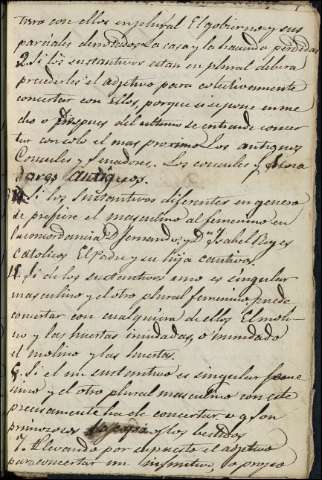 tara con ellos en plural El gobierno y sus
parciales derrotidos. La casa y la hacienda perdidas
2. Si los sustantivos estan en plural debera
precederles el adjetivo para colectivamente
concertar con ellos, porque si se pone en me
dio o despues del ultimo se entiende concer
tar con solo el mas proximo. Los antiguos
Consules y senadores. Los consules y sena
dores antiguos.
Si los sustantivos diferentes en genero
se prefiere el masculino al femenino en
la concordancia Dn Fernando, y Da Isabel Reyes
Catolicos El Padre y su hija cautivos
Si de los sustantivos uno es singular
masculino y el otro plural femenino puede
concertar con cualquiera de ellos. El moli-
no y las huertas inundadas, ó inundado
el molino y las huertas.
6. Si el un sustantivo es singular feme
nino y el otro plural masculino con este
precisamente ha de concertar v g son
primorosos la y los vestidos
7. Llevando por supuesto el adjetivo
para concertar un infinitivo, lo preciso